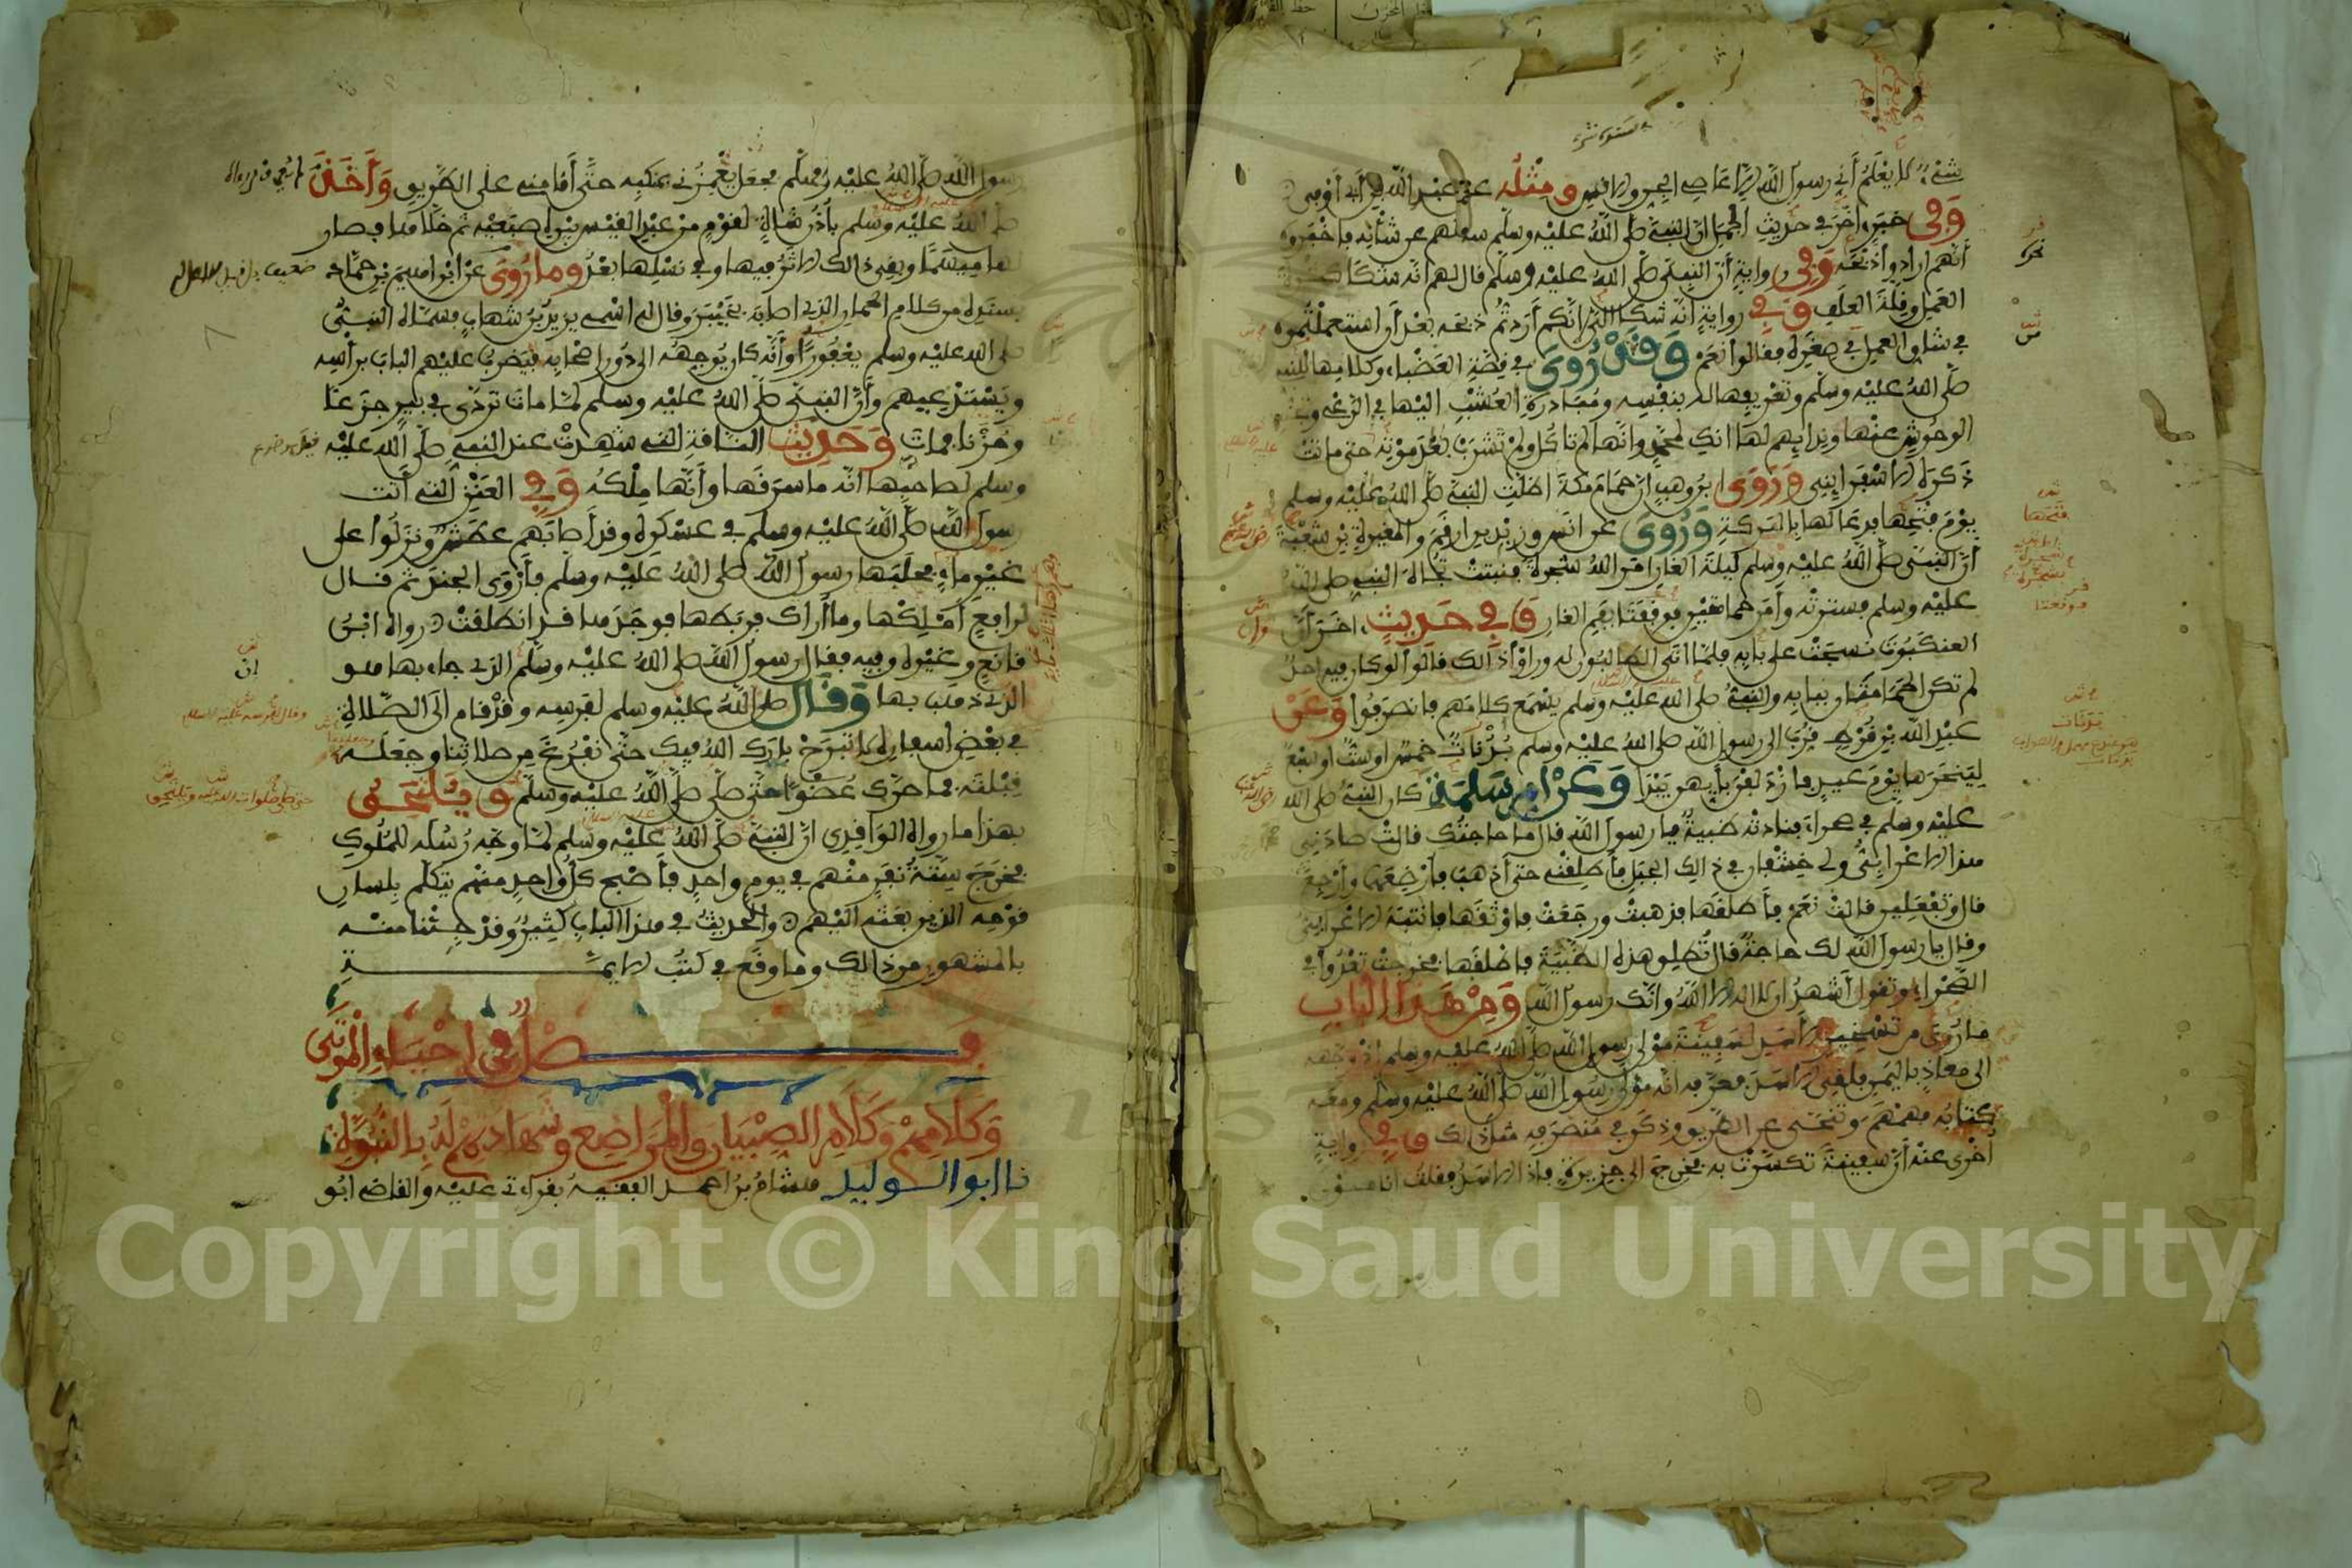 شيء الا يعلم أني رسول الله الا عاصي الجن والانس ومثله عن عبد الله بن أبي أوفى
وفي خبر اخر في حديث الجمل ان النبي صلى الله عليه وسلم سالهم عن شأنه فاخبروه
أنهم ارادوا ذبحه وفي رواية أن النبي صلى الله عليه وسلم قال لهم انه شكا كثرة
العمل وقلة العلف وفي رواية انه شكا الي انكم أردتم ذبحه بعد أن استعملتموه
في شاق العمل في صغره فقالوا نعم وقد روي في قصة العضباء وكلامها للنبي
صلى الله عليه وسلم وتعريفها له بنفسها ومبادرة العشب اليها في الرعي وتجنب
الوحوش عنها وندايهم لها انك لمحمد وانها لم تاكل ولم تشرب بعد موته حتى ماتت
ذكره الاسفرايني وروى ابن وهب ان حمام مكة اظلت النبي صلى الله عليه وسلم
يوم فتحها فدعا لها بالبركة وروي عن انس وزيد بن ارقم والمغيرة بن شعبة
أن النبي صلى الله عليه وسلم ليلة الغار امر الله شجرة فنبتت تجاه النبي صلى الله
عليه وسلم فسترته وأمر حمامتين فوقفتا بفم الغار وفي حديث اخر أن
العنكبوت نسجت على بابه فلما اتى الطالبون له وراوا ذالك قالوا لو كان فيه احد
لم تكن الحمامتان ببابه والنبي صلى الله عليه وسلم يسمع كلامهم فانصرفوا وعن
عبد الله بن قرط قرب الى رسول الله صلى الله عليه وسلم بدنات خمس او ست او سبع
لينحرها يوم عيد فازدلفن بأيهن يبدا وعن ام سلمة كان النبي صلى الله
عليه وسلم في صحراء فنادته ظبية يا رسول الله قال ما حاجتك قالت صادني
هذا الاعرابي ولي خشفان في ذالك الجبل فأطلقني حتى أذهب فأرضعهما وأرجع
قال وتفعلين قالت نعم فأطلقها فذهبت ورجعت فاوثقها فانتبه الاعرابي
وقال يا رسول الله لك حاجة قال تطلق هذه الظبية فاطلقها فخرجت تعدوا في
الصحراء وتقول أشهد ان لا اله الا الله وانك رسول الله ومن هذا الباب
ما روي من تسخير الأسد لسفينة مولى رسول الله صلى الله عليه وسلم اذ وجهه
الى معاذ باليمن فلقي الاسد فعرفه انه مولى رسول الله صلى الله عليه وسلم ومعه
كتابه فهمهم وتنحى عن الطريق وذكر في منصرفه مثل ذالك وفي رواية
أخرى عنه أن سفينة تكسرت به فخرج الى جزيرة فاذا الاسد فقلت انا مولى
رسول الله صلى الله عليه وسلم فجعل يغمزني بمنكبه حتى أقامني على الطريق وأخذ
صلى الله عليه وسلم بأذن شاة لقوم من عبد القيس بين اصبعيه ثم خلاها فصار
لها ميسما وبقي ذالك الاثر فيها وفي نسلها بعد وما روي عن ابراهيم بن حماد
بسنده من كلام الحمار الذي اصابه بخيبر وقال له اسمي يزيد بن شهاب فسماه النبي
صلى الله عليه وسلم يعفورا وأنه كان يوجهه الى دور اصحابه فيضرب عليهم الباب برأسه
ويستدعيهم وأن النبي صلى الله عليه وسلم لما مات تردى في بير جزعا
وحزنا فمات وحديث الناقة التي شهدت عند النبي صلى الله عليه
وسلم لصاحبها انه ما سرقها وأنها ملكه وفي العنز التي أتت
رسول الله صلى الله عليه وسلم في عسكره وقد أصابهم عطش ونزلوا على
غير ماء فحلبها رسول الله صلى الله عليه وسلم فأروى الجند ثم قال
لرافع أملكها وما أراك فربطها فوجدها قد انطلقت رواه ابن
قانع وغيره وفيه فقال رسول الله صلى الله عليه وسلم الذي جاء بها هو
الذي ذهب بها وقال صلى الله عليه وسلم لفرسه وقد قام الى الصلاة
في بعض اسفاره لا تبرح بارك الله فيك حتى نفرغ من صلاتنا وجعله
قبلته فما حرك عضوا حتى صلى صلى الله عليه وسلم ويلتحق
بهذا ما رواه الواقدي ان النبي صلى الله عليه وسلم لما وجه رسله للملوك
فخرج ستة نفر منهم في يوم واحد فأصبح كل واحد منهم يتكلم بلسان
قومه الذين بعثه اليهم والحديث في هذا الباب كثير وقد جئنا منه
بالمشهور من ذالك وما وقع في كتب الايمة
فصل في احياء الموتى
وكلامهم وكلام الصبيان والمراضع وشهادتهم له بالنبوة
نا ابو الوليد هشام بن احمد الفقيه بقراءتي عليه والقاضي ابو
Copyright © King Saud University